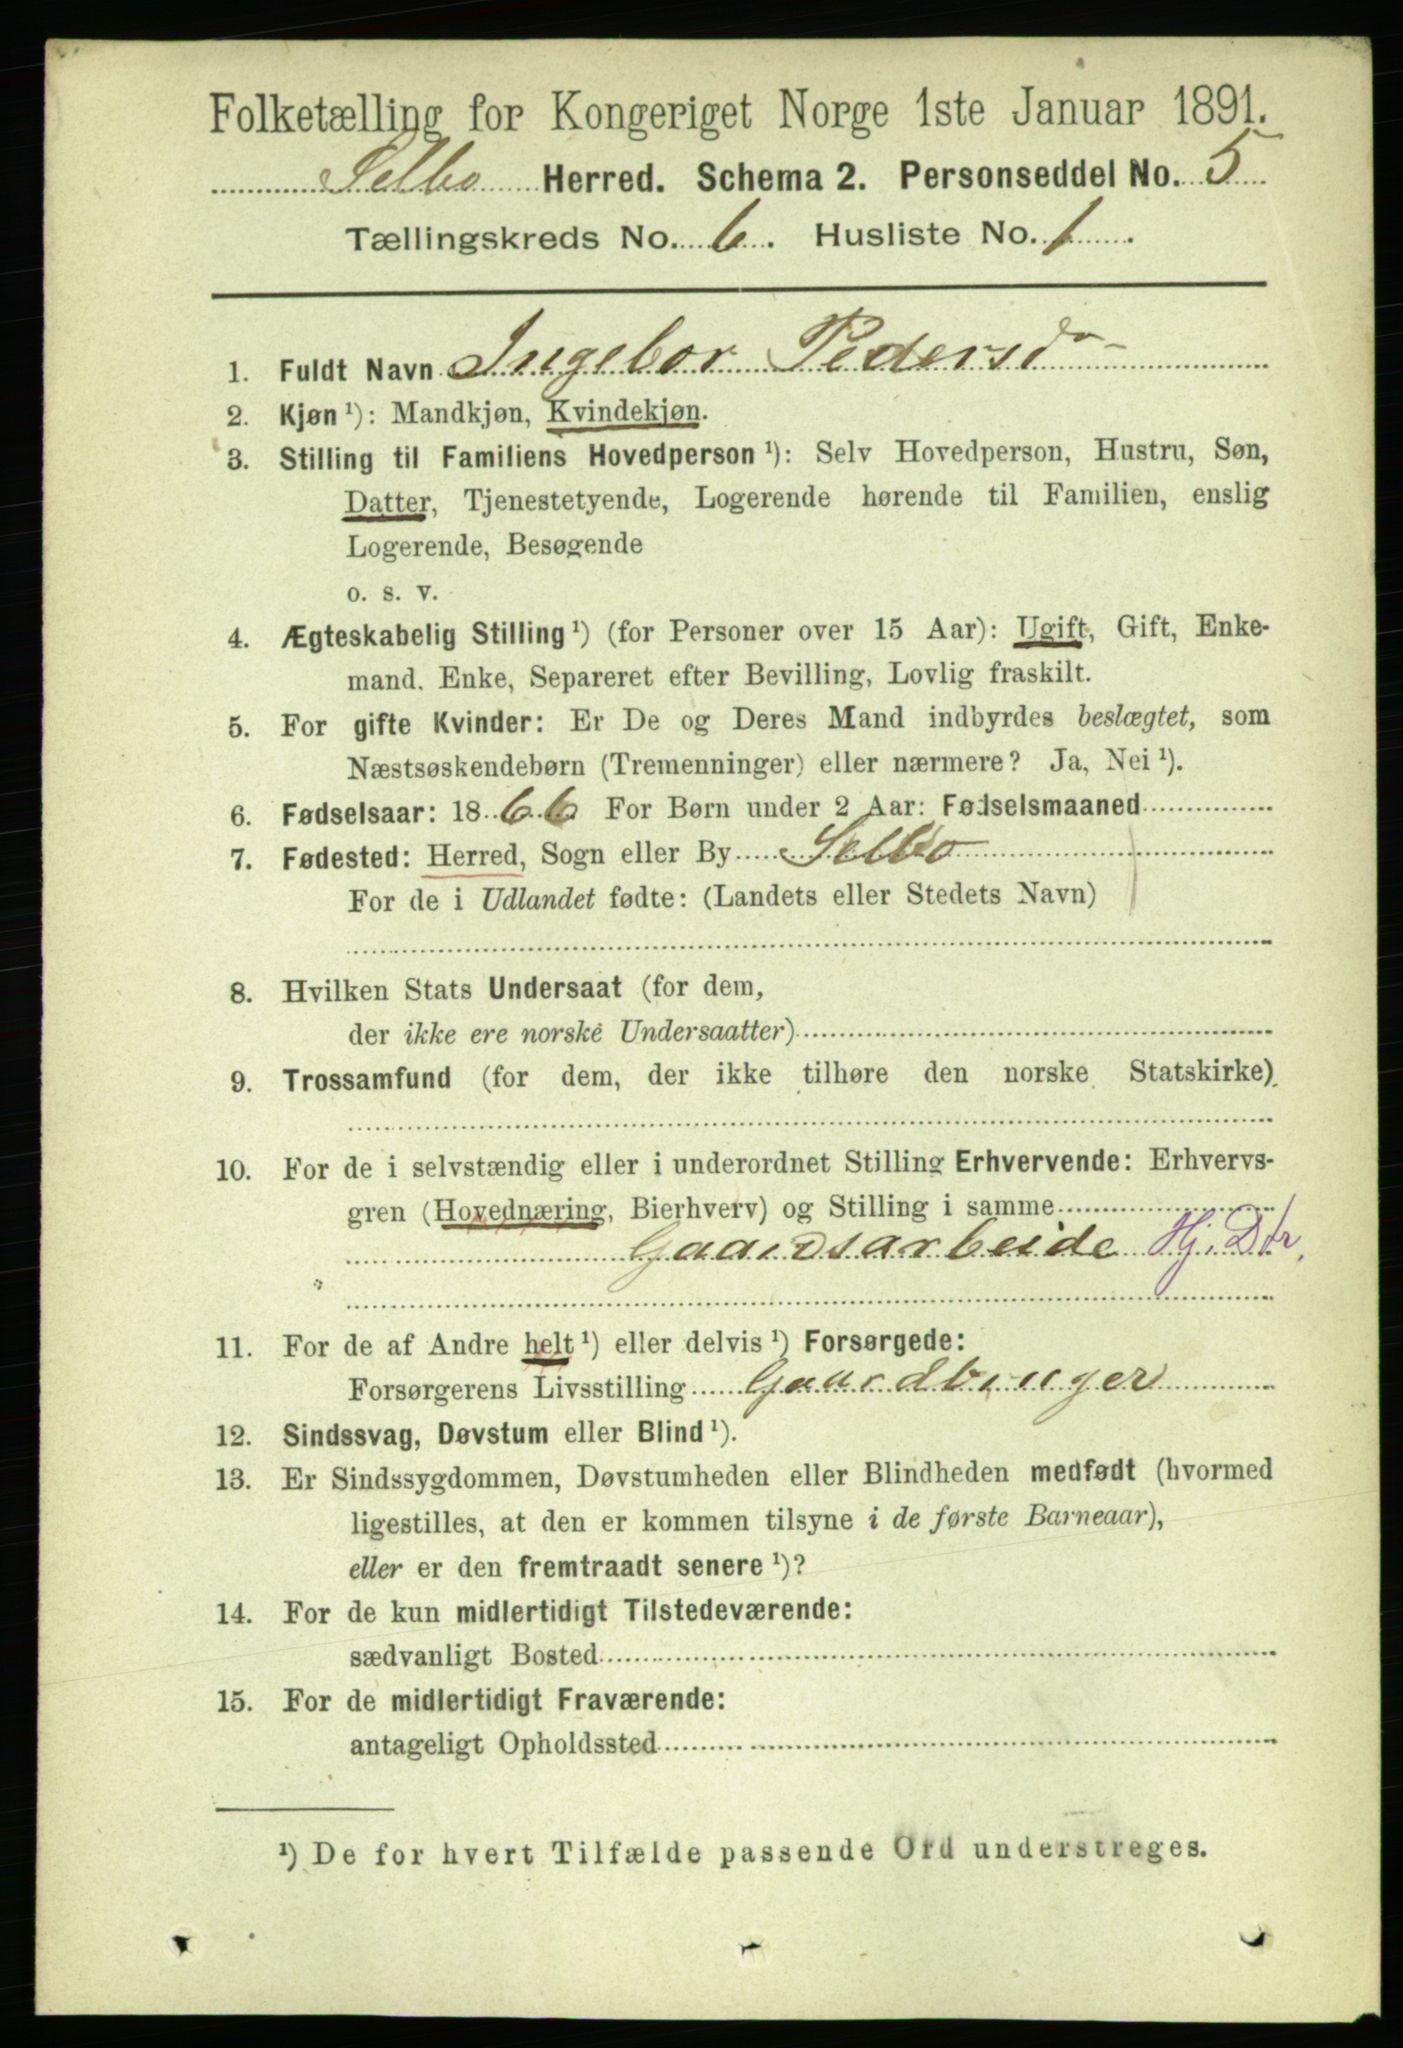 Folketælling for Kongeriget Norge 1ste Januar 1891.
Selbo Herred. Schema 2. Personseddel No. 5
Tællingskreds No. 6. Husliste No. 1.
1. Fuldt Navn Ingebor Pedersdr
2. Kjøn ¹): Mandkjøn, Kvindekjøn.
3. Stilling til Familiens Hovedperson ¹): Selv Hovedperson, Hustru, Søn,
Datter, Tjenestetyende, Logerende hørende til Familien, enslig
Logerende, Besøgende
o. s. v.
4. Ægteskabelig Stilling ¹) (for Personer over 15 Aar): Ugift, Gift, Enke-
mand. Enke, Separeret efter Bevilling, Lovlig fraskilt.
5. For gifte Kvinder: Er De og Deres Mand indbyrdes beslægtet, som
Næstsøskendebørn (Tremenninger) eller nærmere? Ja, Nei ¹).
6. Fødselsaar: 1866 For Børn under 2 Aar: Fødselsmaaned
7. Fødested: Herred, Sogn eller By Selbo
For de i Udlandet fødte: (Landets eller Stedets Navn)
8. Hvilken Stats Undersaat (for dem,
der ikke ere norske Undersaatter)
9. Trossamfund (for dem, der ikke tilhøre den norske Statskirke)
10. For de i selvstændig eller i underordnet Stilling Erhvervende: Erhvervs-
gren (Hovednæring, Bierhverv) og Stilling i samme
Gaardsarbeide Hj. Dtr.
11. For de af Andre helt ¹) eller delvis ¹) Forsørgede:
Forsørgerens Livsstilling Gaardbruger
12. Sindssvag, Døvstum eller Blind ¹).
13. Er Sindssygdommen, Døvstumheden eller Blindheden medfødt (hvormed
ligestilles, at den er kommen tilsyne i de første Barneaar),
eller er den fremtraadt senere ¹)?
14. For de kun midlertidigt Tilstedeværende:
sædvanligt Bosted
15. For de midlertidigt Fraværende:
antageligt Opholdssted
¹) De for hvert Tilfælde passende Ord understreges.